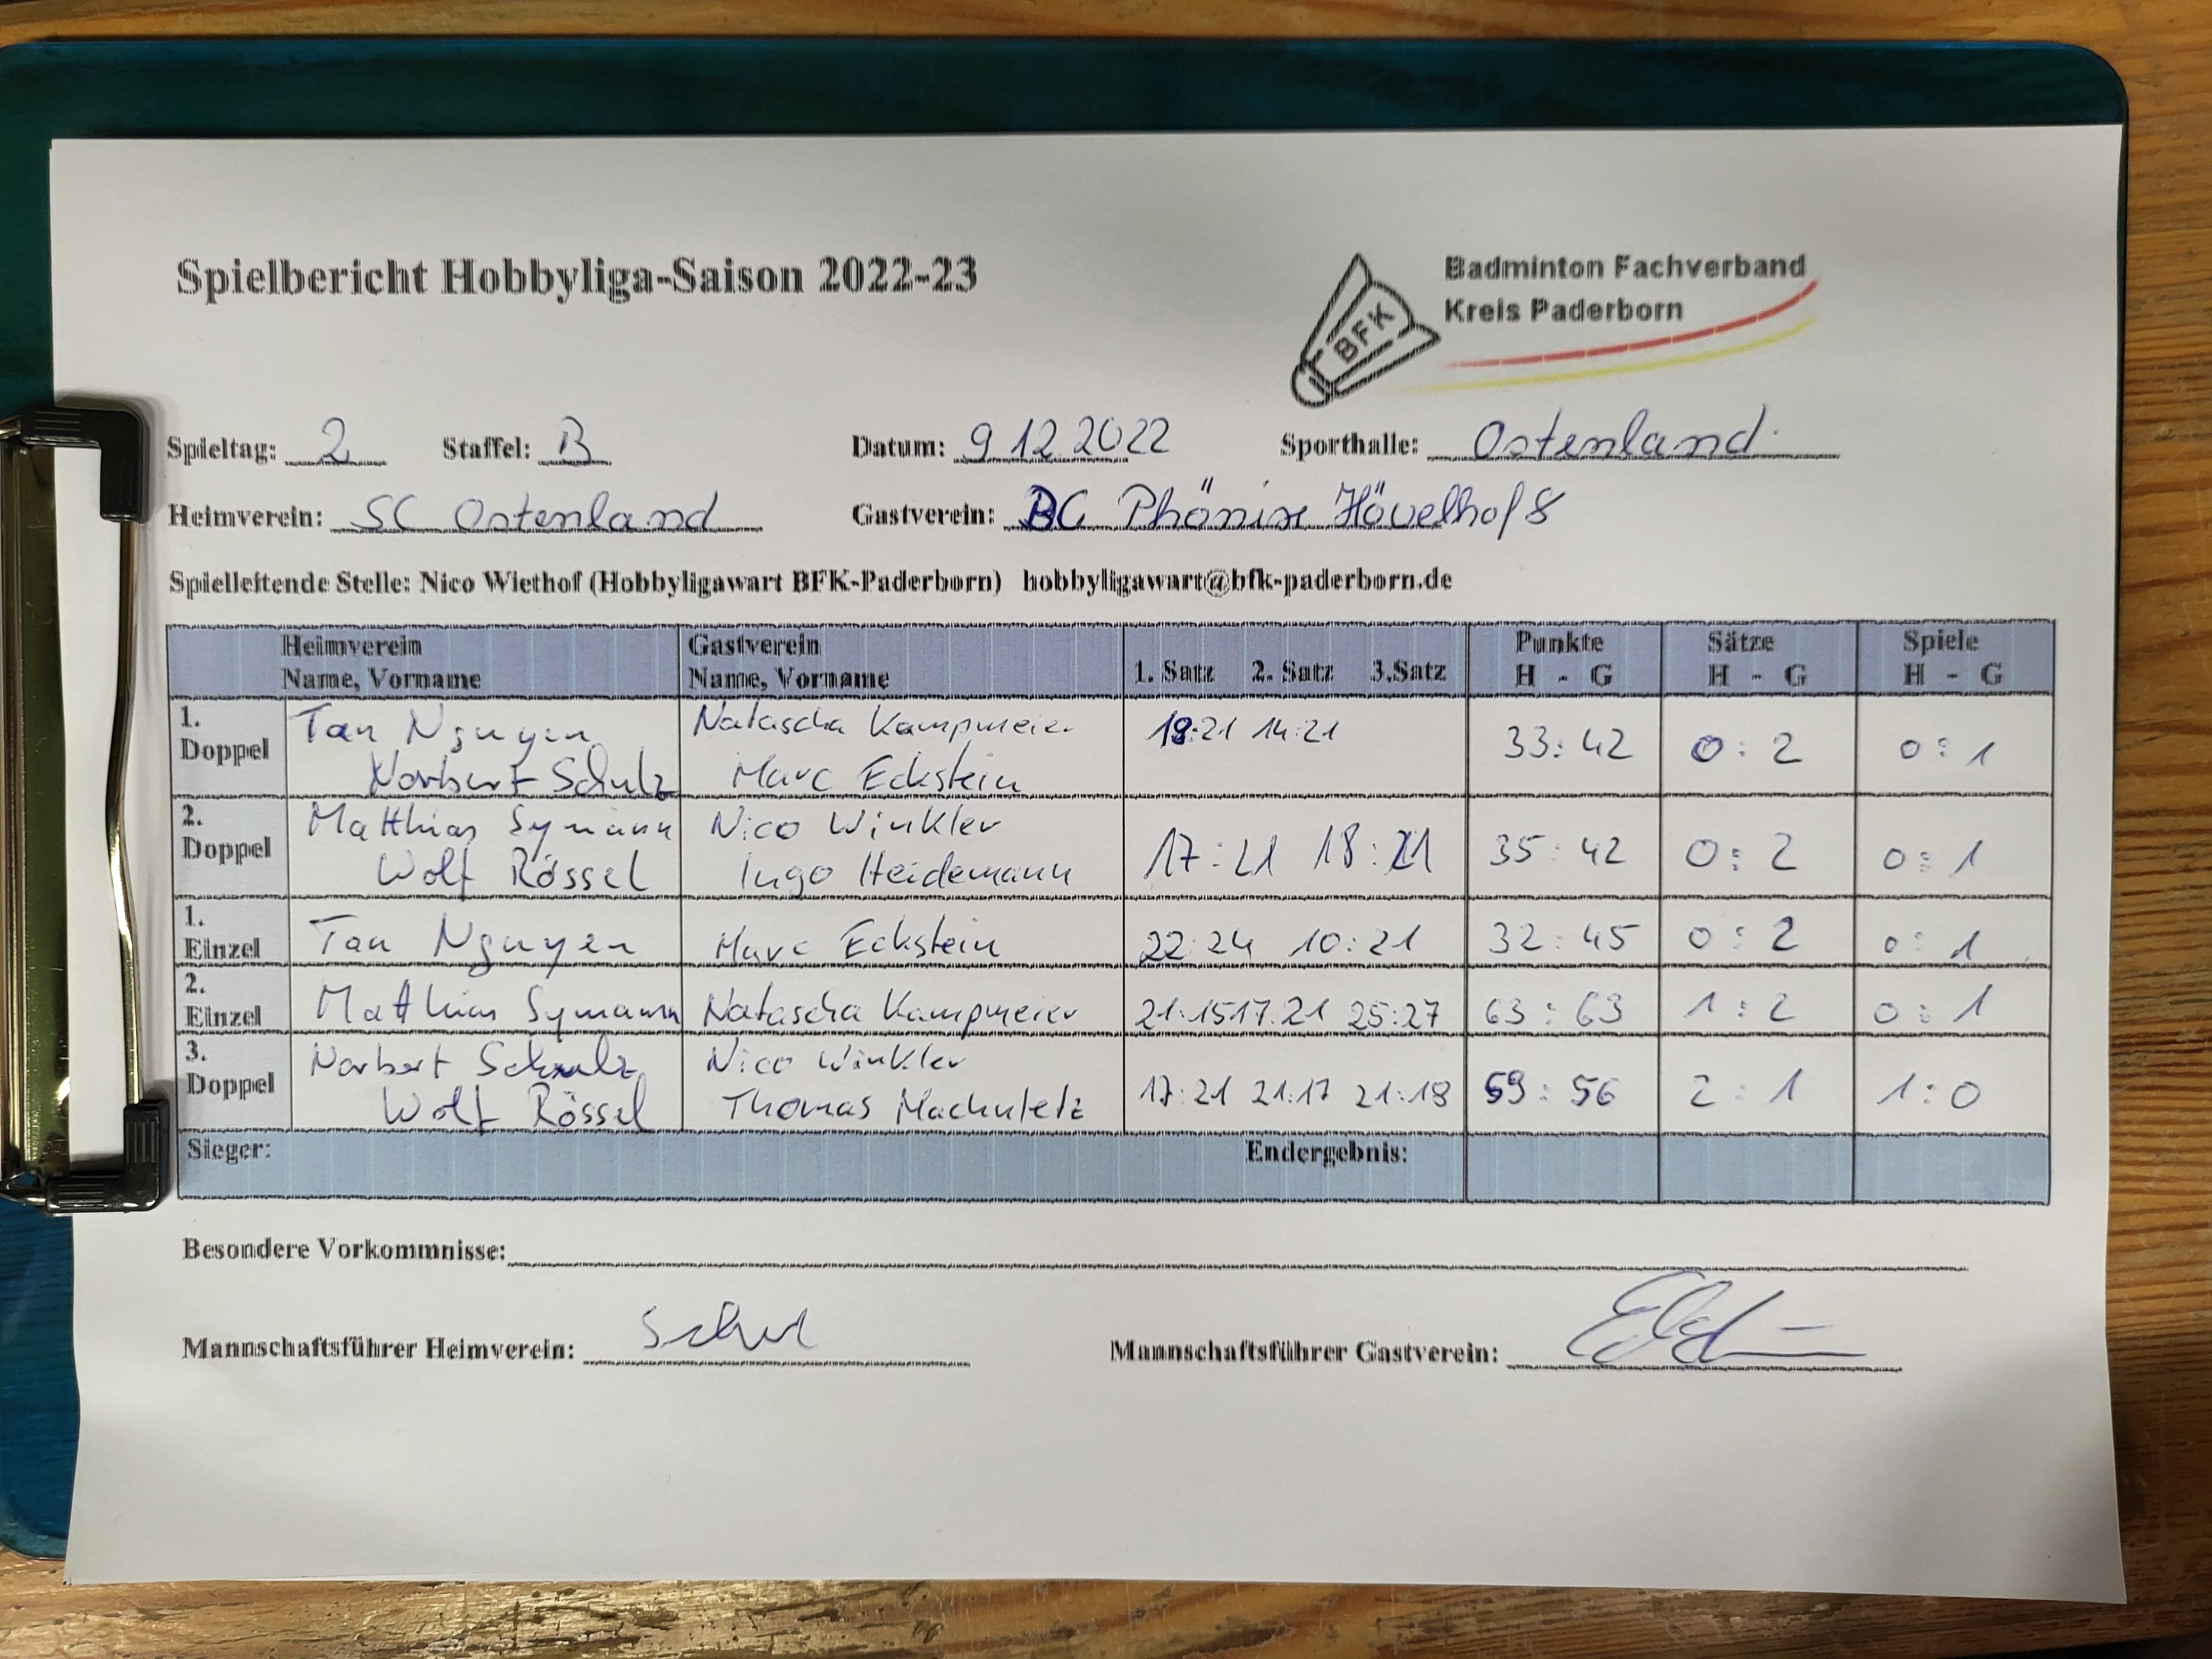 Spielbericht Hobbyliga-Saison 2022-23
Badminton Fachverband
Kreis Paderborn
BFK
Spieltag: 2 Staffel: B Datum: 9.12.2022 Sporthalle: Ostenland
Heimverein: SC Ostenland Gastverein: BC Phönix Hövelhof 8
Spielleitende Stelle: Nico Wiethof (Hobbyligawart BFK-Paderborn) hobbyligawart@bfk-paderborn.de
Heimverein Gastverein Punkte Sätze Spiele
Name, Vorname Name, Vorname 1. Satz 2. Satz 3.Satz H - G H - G H - G
1. Doppel Tan Nguyen Natascha Kampmeier 19:21 14:21 33:42 0:2 0:1
Norbert Schulz Marc Eckstein
2. Doppel Matthias Symann Nico Winkler 17:21 18:21 35:42 0:2 0:1
Wolf Rössel Ingo Heidemann
1. Einzel Tan Nguyen Marc Eckstein 22:24 10:21 32:45 0:2 0:1
2. Einzel Matthias Symann Natascha Kampmeier 21:15 17:21 25:27 63:63 1:2 0:1
3. Doppel Norbert Schulz Nico Winkler 17:21 21:17 21:18 59:56 2:1 1:0
Wolf Rössel Thomas
Sieger: Endergebnis:
Besondere Vorkommnisse:
Mannschaftsführer Heimverein: Mannschaftsführer Gastverein: